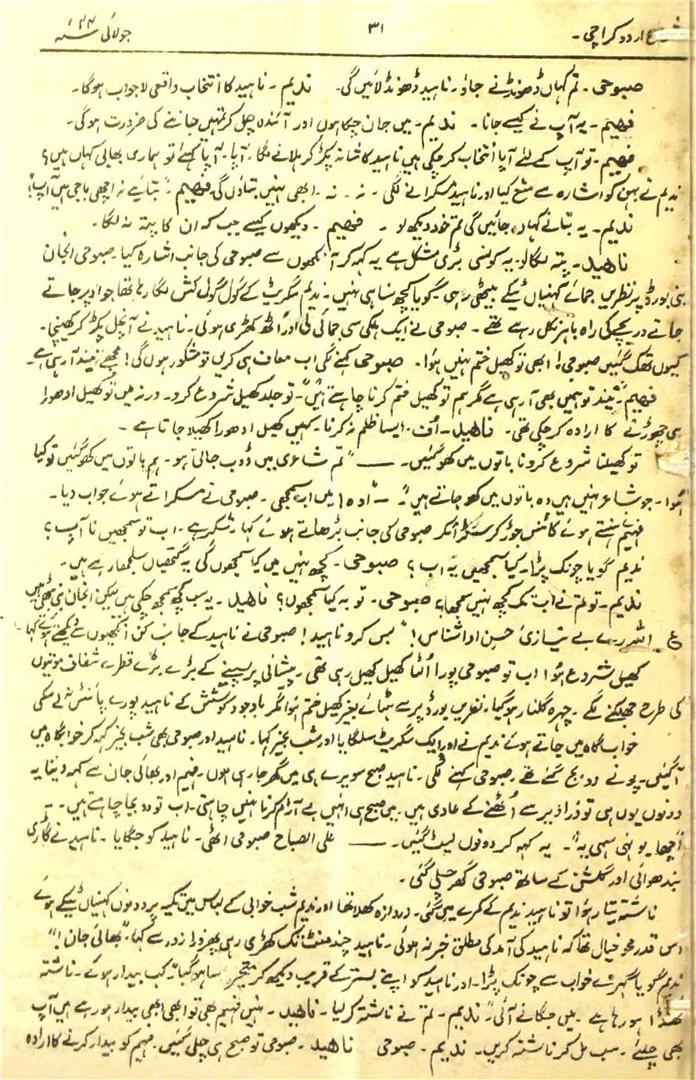 شمع اردو کراچی۔ ۳۱ جولائی ۲۴ سنہ
صبوحی۔ تم کہاں ڈھونڈنے جاؤ۔ ناہید ڈھونڈ لائیں گی۔ ندیم۔ ناہید کا انتخاب واقعی لاجواب ہوگا۔
فہیم۔ یہ آپ نے کیسے جانا۔ ندیم۔ میں جان چکا ہوں اور آئندہ چل کر تمہیں جاننے کی ضرورت ہوگی۔
فہیم۔ تو آپ کے لئے آپا انتخاب کر چکی ہیں ناہید کا شانہ پکڑ کر ہلانے لگا۔ آپا۔ آپا کہئے تو ہماری بھابی کہاں ہیں؟
ندیم نے بہن کو اشارہ سے منع کیا اور ناہید مسکرانے لگی۔ نہ۔ نہ۔ ابھی نہیں بتاؤں گی۔ فہیم "بتایئے نہ اچھی باجی ہیں آپ"؟
ندیم۔ یہ بتانے کہاں جائیں گی تم خود دیکھ لو۔ فہیم۔ دیکھوں کیسے جب کہ ان کا پتہ نہ لگا۔
ناھید۔ پتہ لگا لو۔ یہ کونسی بڑی مشکل ہے یہ کہہ کر آنکھوں سے صبوحی کی جانب اشارہ کیا۔ صبوحی انجان
بنی بورڈ پر نظریں جمائے کہنیاں ٹیکے بیٹھی رہی۔ گویا کچھ سنا ہی نہیں۔ ندیم سگریٹ کے گول گول کش لگا رہا تھا جو اوپر جاتے
جاتے دریچے کی راہ باہر نکل رہے تھے۔ صبوحی نے ایک ہلکی سی جمائی لی اور اٹھ کھڑی ہوئی۔ ناہید نے آنچل پکڑ کر کھینچی۔
کیوں تھک گئیں صبوحی! ابھی تو کھیل ختم نہیں ہوا۔ صبوحی کہنے لگی اب معاف ہی کریں تو مشکور ہوں گی! مجھے نیند آ رہی ہے۔
فہیم "نیند تو ہمیں بھی آ رہی ہے مگر ہم تو کھیل ختم کرنا چاہتے ہیں"۔ تو جلد کھیل شروع کرو۔ ورنہ میں تو کھیل ادھورا
ہی چھوڑنے کا ارادہ کر چکی تھی۔ ناھید۔ اُف۔ ایسا ظلم نہ کرنا۔ کہیں کھیل ادھورا کھیلا جاتا ہے۔
تو کھیلنا شروع کرو نا باتوں میں کھو گئیں۔ —— "تم شاعری میں ڈوب جاتی ہو۔ ہم باتوں میں کھو گئیں تو کیا
ہوا۔ جو شاعر نہیں ہیں وہ باتوں میں کھو جاتے ہیں"۔ "اوہ! میں اب سمجھی۔ صبوحی نے مسکراتے ہوئے جواب دیا۔
فہیم ہنستے ہوئے کائنس جوڑ کر سٹرائکر صبوحی کی جانب بڑھاتے ہوئے کہا۔ شکر ہے۔ اب تو سمجھیں نا آپ؟
ندیم گویا چونک پڑا۔ کیا سمجھیں یہ اب؟ صبوحی۔ کچھ نہیں میں کیا سمجھوں گی یہ گتھیاں سلجھا رہے ہیں۔
ندیم۔ تو تم نے اب تک کچھ نہیں سمجھا؟ صبوحی۔ تو یہ کیا سمجھوں؟ ناھید۔ یہ سب کچھ سمجھ چکی ہیں لیکن انجان بنی بیٹھی ہیں
ع اللہ رے بے نیازیٔ حسن اداشناس!" بس کرو ناہید! صبوحی نے ناہید کے جانب کن انکھیوں سے دیکھتے ہوئے کہا
کھیل شروع ہوا اب تو صبوحی پورا اُلٹا کھیل کھیل رہی تھی۔ پیشانی پر پسینے کے بڑے بڑے قطرے شفاف موتیوں
کی طرح جھلکنے لگے۔ چہرہ گلنار ہو گیا۔ نظریں بورڈ پر سے ہٹائے بغیر کھیل ختم ہوا مگر باوجود کوشش کے ناہید پورے پائنٹس نہ لے سکی
خواب گاہ میں جاتے ہوئے ندیم نے اور ایک سگریٹ سلگایا اور شب بخیر کہا۔ ناہید اور صبوحی بھی شب بخیر کہہ کر خوابگاہ میں
آ گئیں۔ پونے دو بج گئے تھے۔ صبوحی کہنے لگی۔ ناہید صبح سویرے ہی میں گھر جا رہی ہوں۔ فہیم اور بھائی جان سے کہہ دینا یہ
دونوں یوں ہی تو ذرا دیر سے اُٹھنے کے عادی ہیں۔ میں صبح ہی انہیں بے آرام کرنا نہیں چاہتی۔ اب تو دو بجا چاہتے ہیں۔
"اچھا یونہی سہی یہ"۔ یہ کہہ کر دونوں لیٹ گئیں۔ —— علی الصباح صبوحی اٹھی۔ ناہید کو جگایا۔ ناہید نے گاڑی
بندھوائی اور گلشن کے ساتھ صبوحی گھر چلی گئی۔
ناشتہ تیار ہوا تو ناہید ندیم کے کمرے میں گئی۔ دروازہ کھلا تھا اور ندیم شب خوابی کے لباس میں تکیہ پر دونوں کہنیاں ٹیکے ہوئے
اس قدر محو خیال تھا کہ ناہید کی آمد کی مطلق خبر نہ ہوئی۔ ناہید چند منٹ تک کھڑی رہی پھر ذرا زور سے کہا "بھائی جان!"
ندیم گویا گہرے خواب سے چونک پڑا۔ اور ناہید کو اپنے بستر کے قریب دیکھ کر متحیر سا ہو گیا۔ کب بیدار ہوئے۔ ناشتہ
ٹھنڈا ہو رہا ہے۔ میں جگانے آئی۔ ندیم۔ تم نے ناشتہ کر لیا۔ ناھید۔ نہیں فہیم بھی تو ابھی ابھی بیدار ہو رہے ہیں آپ
بھی چلئے۔ سب مل کر ناشتہ کریں۔ ندیم۔ صبوحی ناھید۔ صبوحی تو صبح ہی چلی گئیں۔ فہیم کو بیدار کرنے کا ارادہ